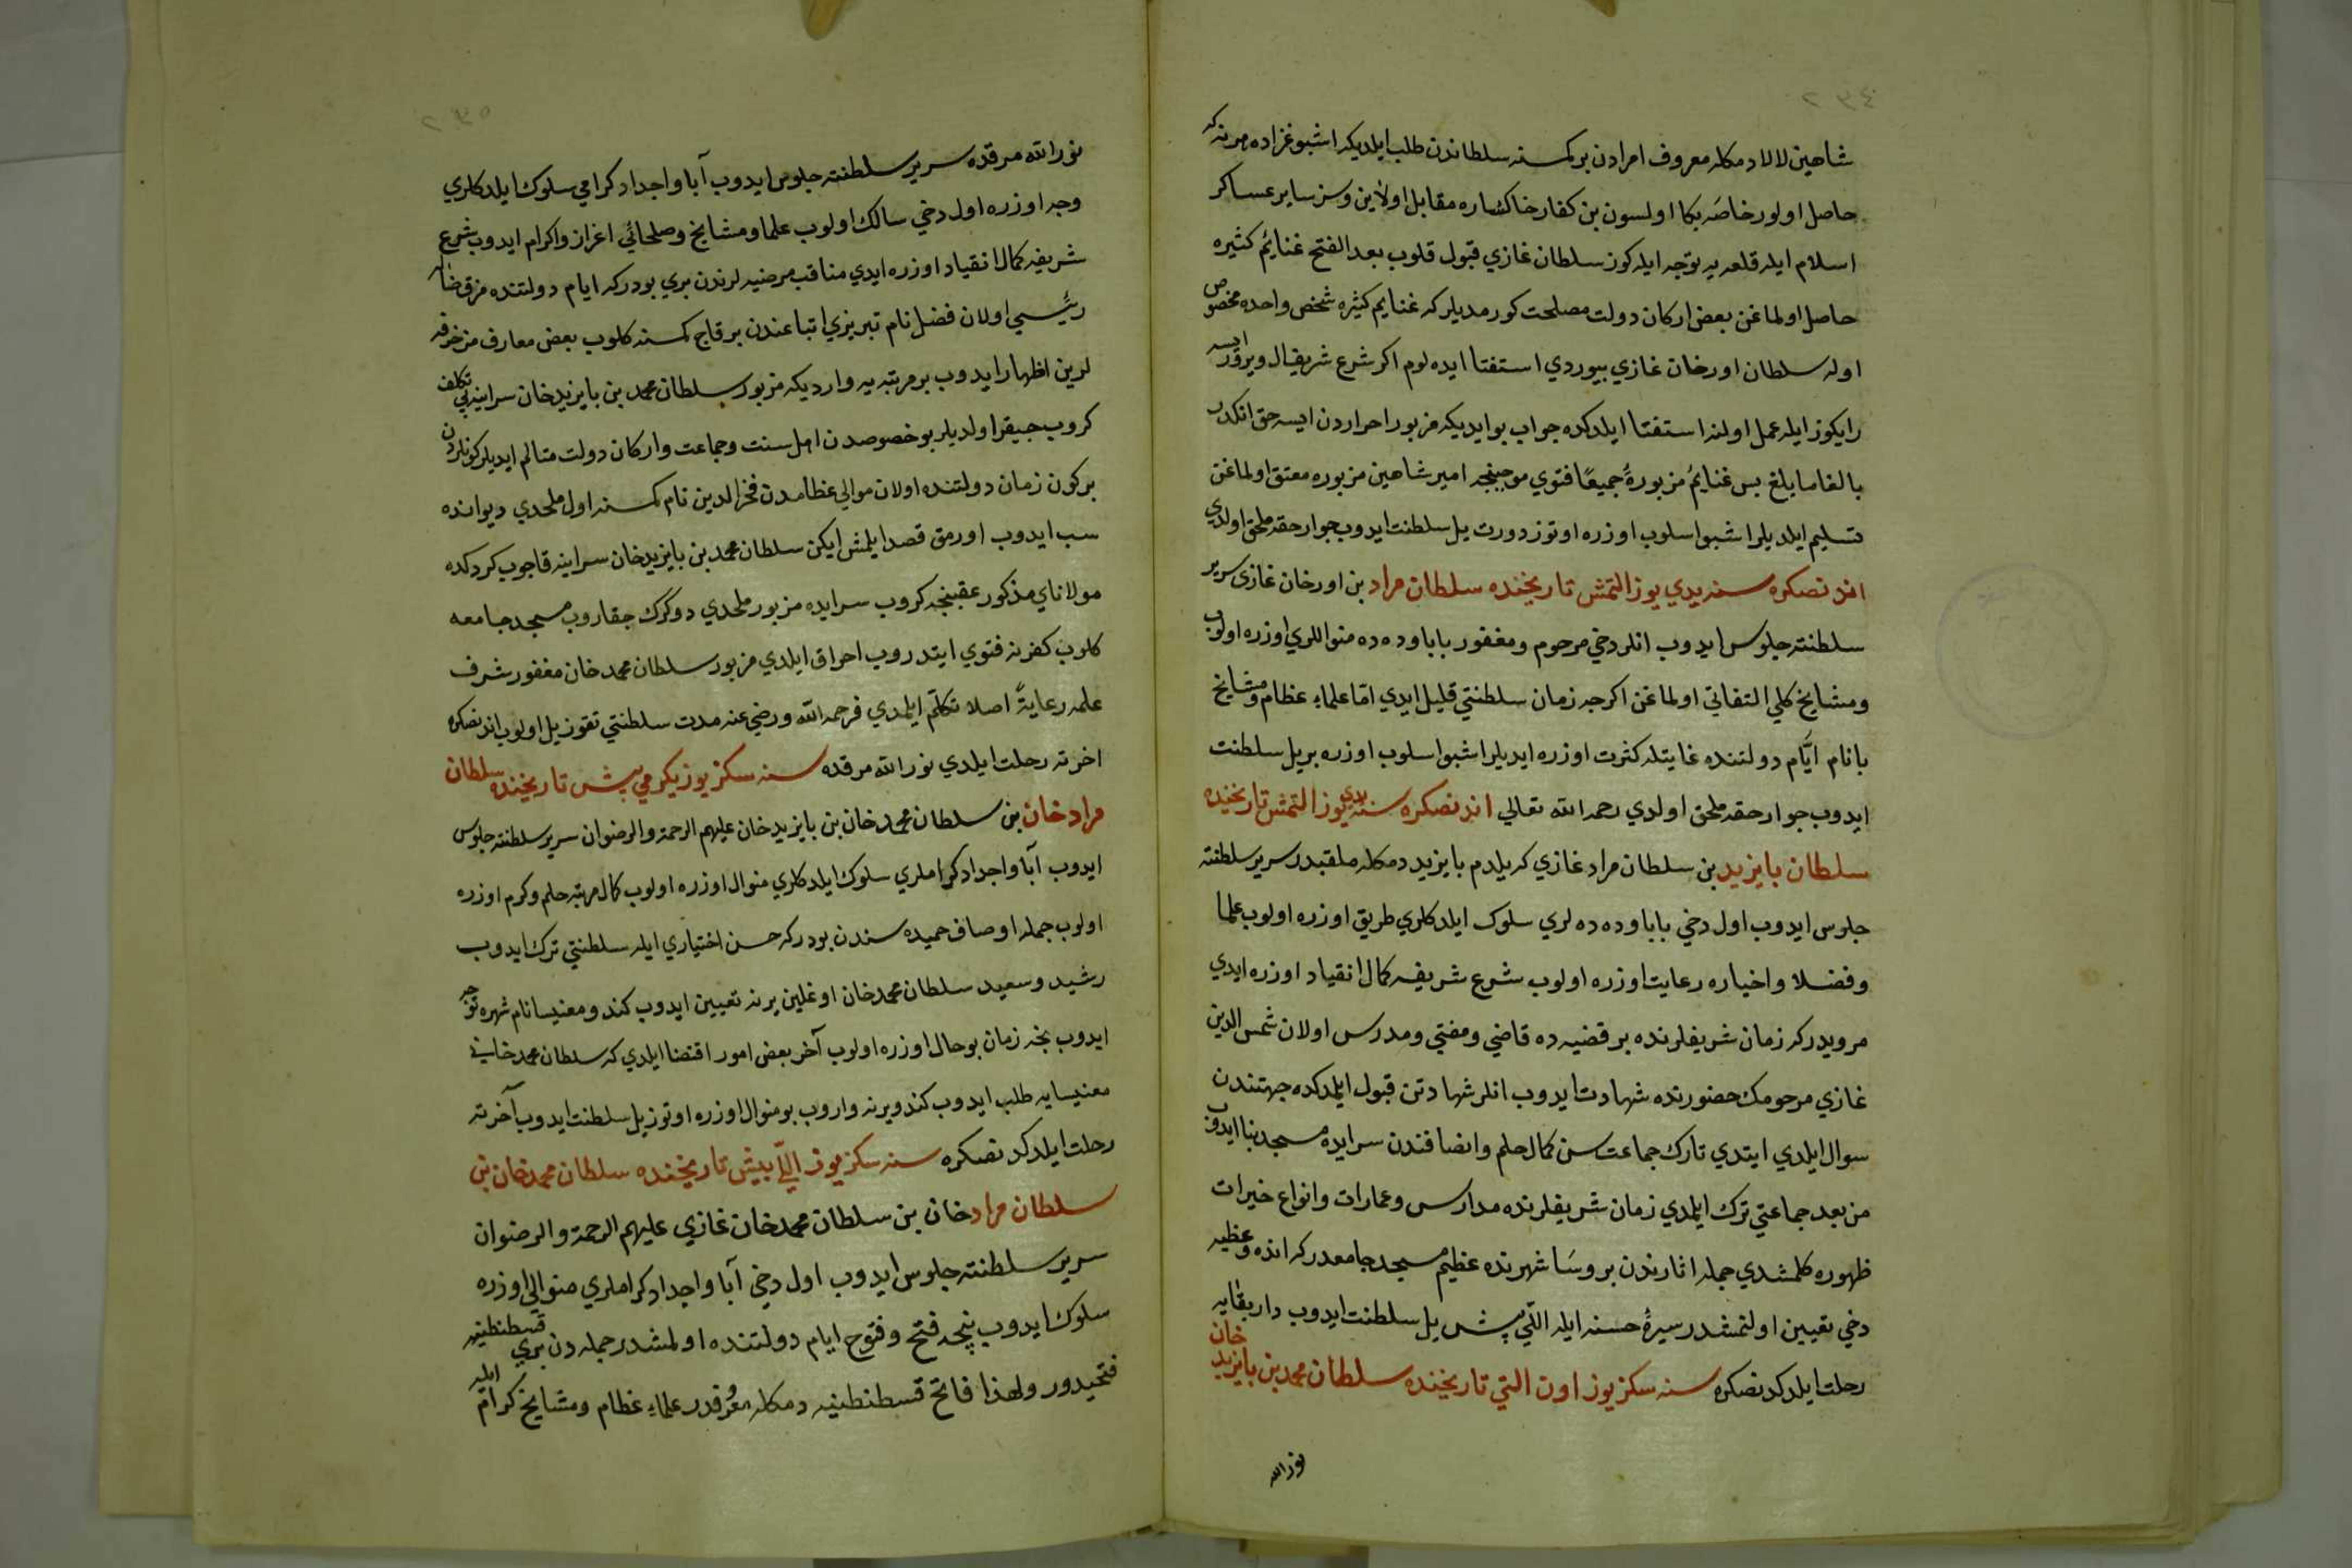 ٢٣٤
شاهين لالا دمكله معروف امرادن بر كمسنه سلطاندن طلب ايلديكه اشبو غزاده هر نه كه
حاصل اولور خاصه بكا اولسون بن كفار خاكساره مقابل اولاين و سز ساير عساكر
اسلام ايله قلعه يه توجه ايله كوز سلطان غازي قبول قلوب بعد الفتح غنايم كثيره
حاصل اولماغن بعض اركان دولت مصلحت كورمديلر كه غنايم كثيره شخص واحده مخصوص
اوله سلطان اورخان غازي بيوردي استفتا ايده لوم اكر شرع شريف ال ويرور ايسه
رايكوز ايله عمل اولنه استفتا ايلدكده جواب بو ايديكه مزبور احراردن ايسه حق انكدر
بالغا ما بلغ پس غنايم مزبورۀ جميعًا فتوي موجبنجه امير شاهين مزبوره معتق اولماغن
تسليم ايلديلر اشبو اسلوب اوزره اوتوز دورت ييل سلطنت ايدوب جوار حقه ملحق اولدي
اندنصكره سنه يدي يوز التمش تاريخنده سلطان مراد بن اورخان غازي سرير
سلطنته جلوس ايدوب انلر دخي مرحوم ومغفور بابا وده ده منواللري اوزره اولوب
ومشايخ كلي التفاتي اولماغن اكرچه زمان سلطنتي قليل ايدي اما علماء عظام ومشايخ
بانام ايّام دولتنده غايتله كثرت اوزره ايديلر اشبو اسلوب اوزره بر ييل سلطنت
ايدوب جوار حقه ملحق اولدي رحمه الله تعالي اندنصكره سنه يدي يوز التمش تاريخنده
سلطان بايزيد بن سلطان مراد غازي كه يلدرم بايزيد دمكله ملقبدر سرير سلطنته
جلوس ايدوب اول دخي بابا وده ده لري سلوك ايلدكلري طريق اوزره اولوب علما
وفضلا واخياره رعايت اوزره اولوب شرع شريفه كمال انقياد اوزره ايدي
مرويدر كه زمان شريفلرنده بر قضيه ده قاضي ومفتي ومدرس اولان شمس الدين
غازي مرحومك حضورنده شهادت ايدوب انلر شهادتن قبول ايلمدكده جهتندن
سوال ايلدي ايتدي تارك جماعت سن كمال حلم وانصافندن سرايده مسجد بنا ايدوب
من بعد جماعتي ترك ايلمدي زمان شريفلرنده مدارس وعمارات وانواع خيرات
ظهوره كلمشدي جمله اثارندن بروسا شهرنده عظيم مسجد جامعدر كه انده وظيفه
دخي تعيين اولنمشدر سيرۀ حسنه ايله اللي بش ييل سلطنت ايدوب دار بقايه
رحلت ايلدكدنصكره سنه سكز يوز اون التي تاريخنده سلطان محمد بن بايزيد خان
نور الله
٢٣٥
نور الله مرقده سرير سلطنته جلوس ايدوب آبا واجداد كرامي سلوك ايلدكلري
وجه اوزره اول دخي سالك اولوب علما ومشايخ وصلحائي اعزاز واكرام ايدوب شرع
شريفه كمال انقياد اوزره ايدي مناقب مرضيه لرندن بري بودر كه ايام دولتنده فرق ضاله
رئيسي اولان فضل نام تبريزي اتباعندن بر قاچ كمسنه كلوب بعض معارف مزخرفه
لرين اظهار ايدوب بر مرتبه يه وارديكه مزبور سلطان محمد بن بايزيد خان سراينه بي تكلف
كروب چيقر اولديلر بو خصوصدن اهل سنت وجماعت واركان دولت متالم ايديلر كونلردن
بركون زمان دولتنده اولان موالي عظامدن فخر الدين نام كمسنه اول ملحدي ديوانده
سب ايدوب اورمق قصد ايلمش ايكن سلطان محمد بن بايزيد خان سراينه قاچوب كردكده
مولاناي مذكور عقبنجه كروب سرايده مزبور ملحدي دوكرك چقاروب مسجد جامعه
كلوب كفرينه فتوي ايتدروب احراق ايلدي مزبور سلطان محمد خان مغفور شرف
علمه رعايةً اصلا تكلم ايلمدي فرحمه الله ورضي عنه مدت سلطنتي تقوز ييل اولوب اندنصكره
اخرته رحلت ايلدي نور الله مرقده سنه سكز يوز يكرمي بش تاريخنده سلطان
مراد خان بن سلطان محمد خان بن بايزيد خان عليهم الرحمة والرضوان سرير سلطنته جلوس
ايدوب آبا واجداد كراملري سلوك ايلدكلري منوال اوزره اولوب كمال مرتبه حلم وكرم اوزره
اولوب جمله اوصاف حميده سندن بودر كه حسن اختياري ايله سلطنتي ترك ايدوب
رشيد وسعيد سلطان محمد خان اوغلين يرنه تعيين ايدوب كندو مغنيسا نام شهره توجه
ايدوب نجه زمان بو حال اوزره اولوب آخر بعض امور اقتضا ايلدي كه سلطان محمد خاني
مغنيسايه طلب ايدوب كندو يرنه واروب بو منوال اوزره اوتوز ييل سلطنت ايدوب آخرته
رحلت ايلدكدنصكره سنه سكز يوز اللي بش تاريخنده سلطان محمد خان بن
سلطان مراد خان بن سلطان محمد خان غازي عليهم الرحمة والرضوان
سرير سلطنته جلوس ايدوب اول دخي آبا واجداد كراملري منوالي اوزره
سلوك ايدوب نيجه فتح وفتوح ايام دولتنده اولمشدر جمله دن بري قسطنطنيه
فتحيدور ولهذا فاتح قسطنطنيه دمكله معروفدر علماء عظام ومشايخ كرام ايله